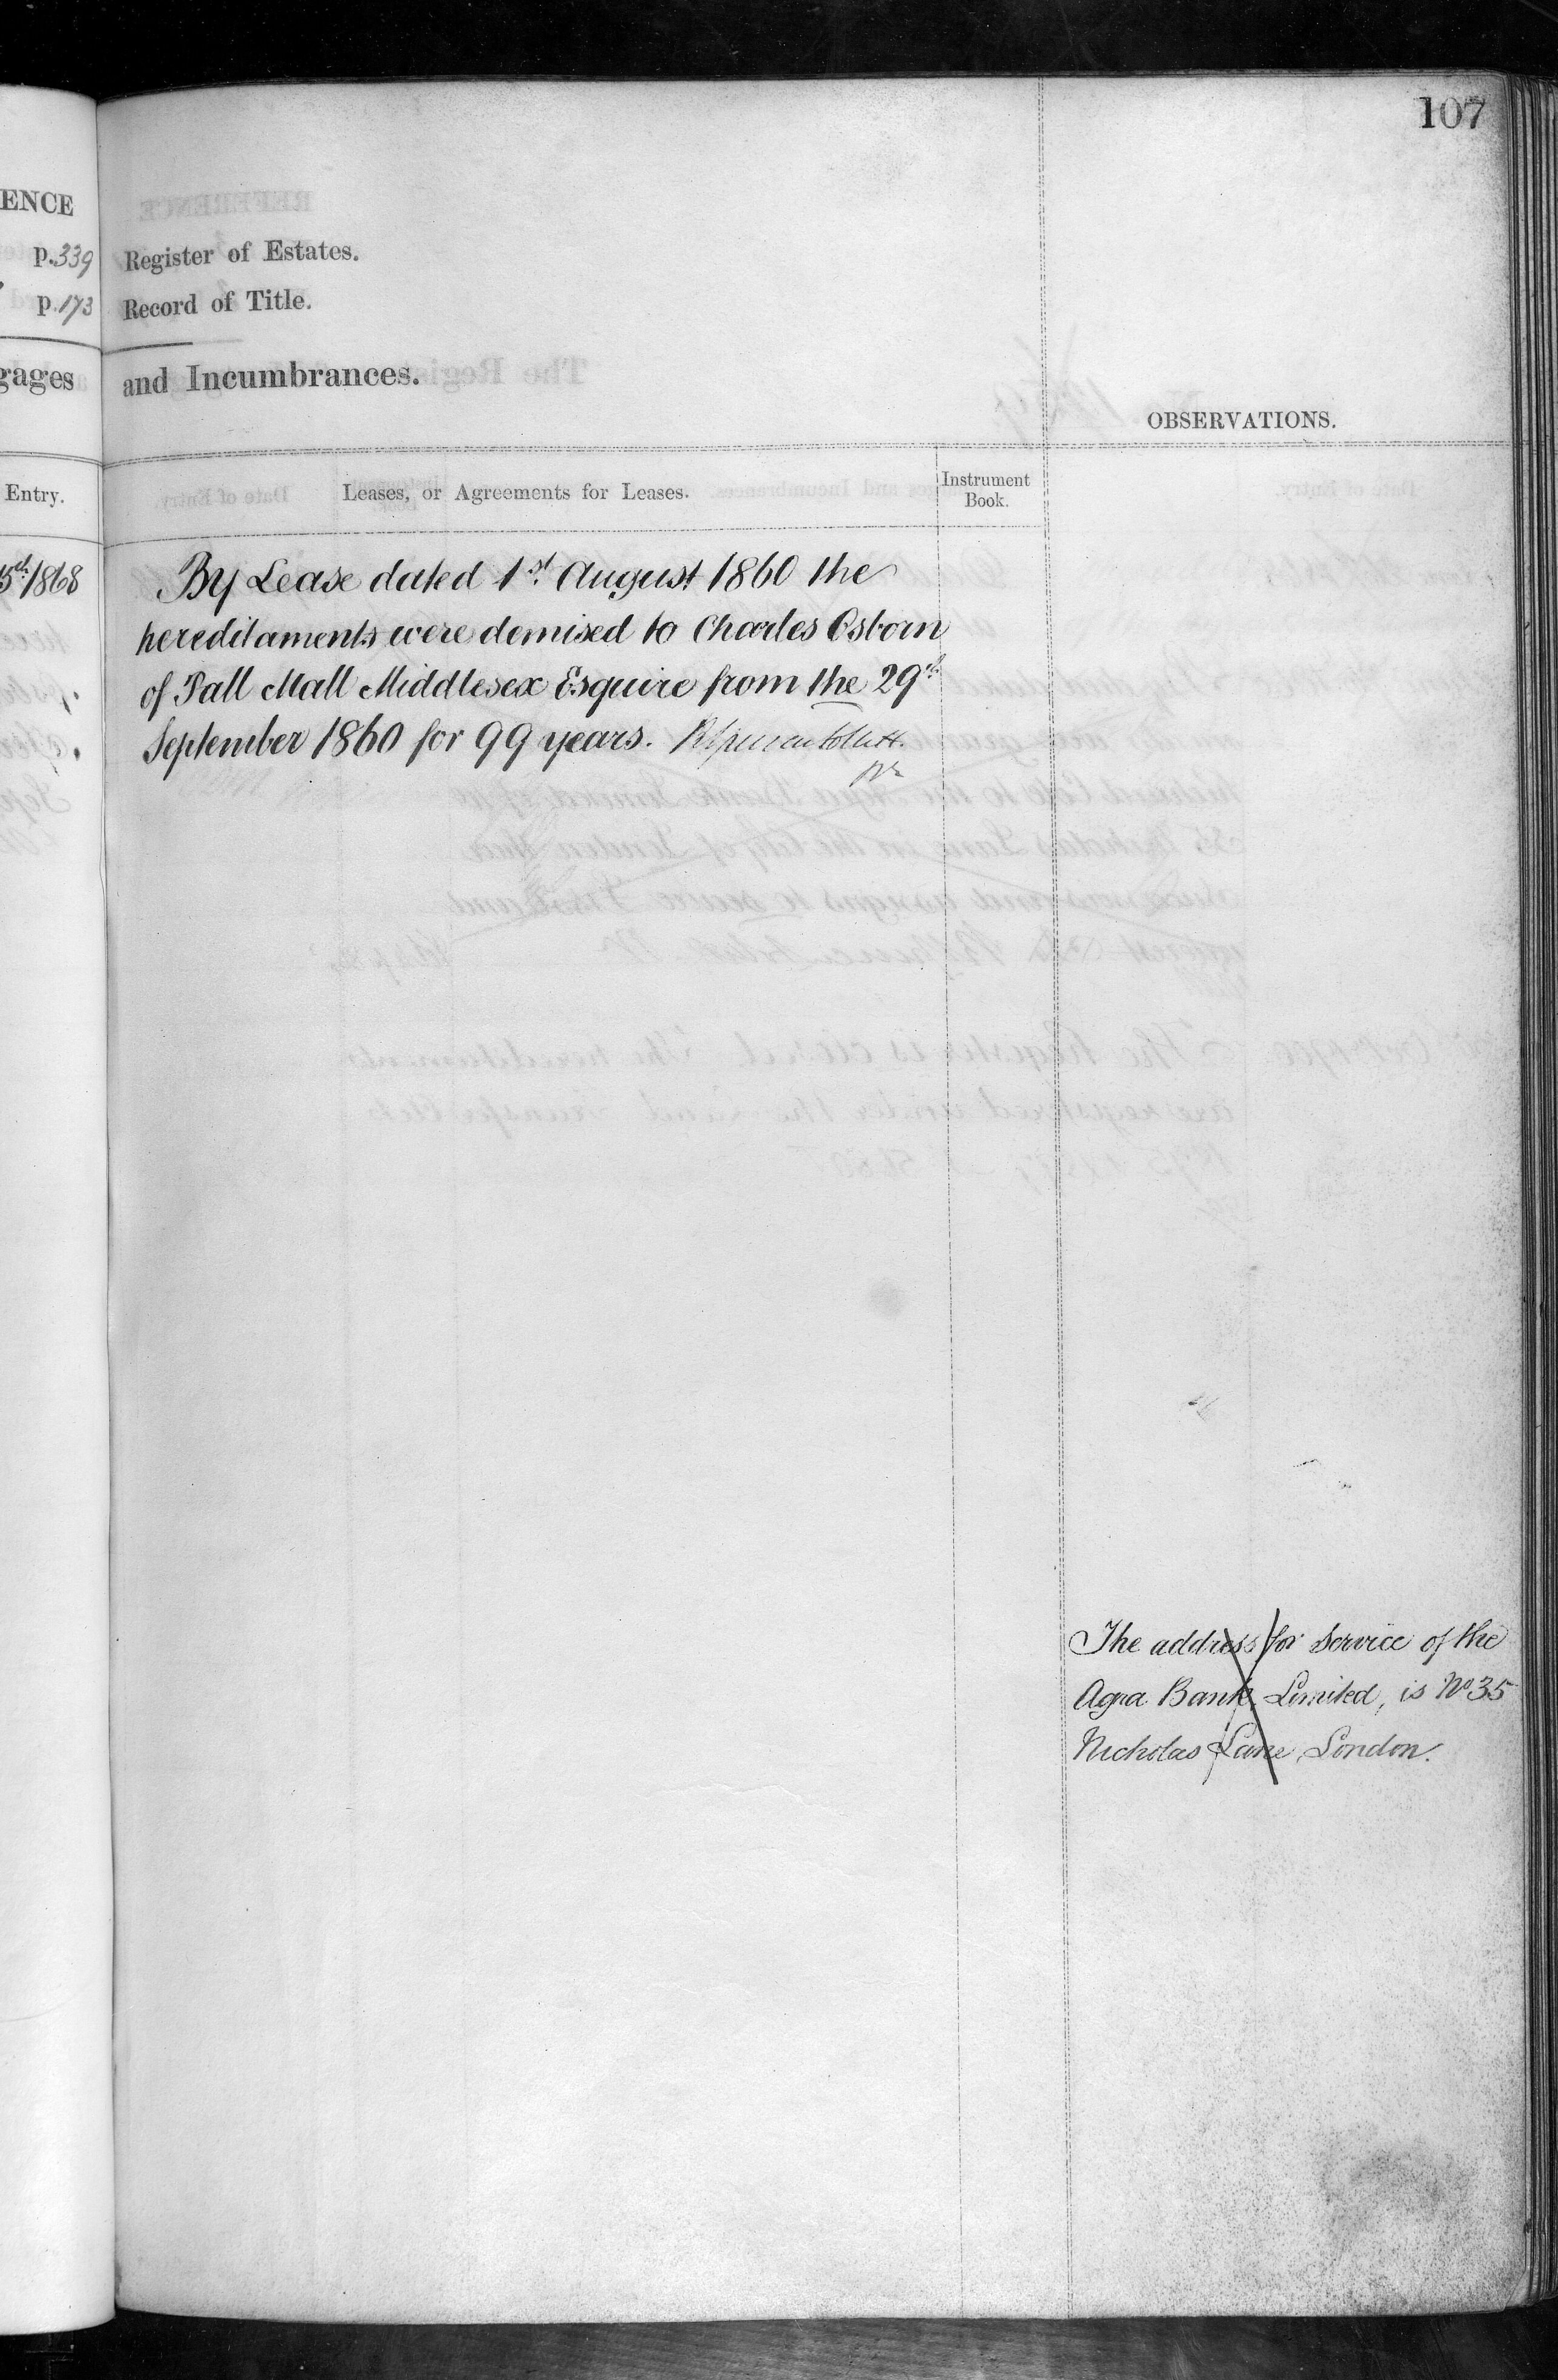 107
ENCE
p. 339 Register of Estates.
p. 173 Record of Title.
gages and Incumbrances.
OBSERVATIONS.
Entry.
Leases, or Agreements for Leases.
Instrument
Book.
1868
By Lease dated 1st August 1860 the
hereditaments were demised to Charles Osborn
of Pall Mall Middlesex Esquire from the 29th
September 1860 for 99 years.
The address for service of the
Agra Bank, Limited, is No 35
Nicholas Lane, London.